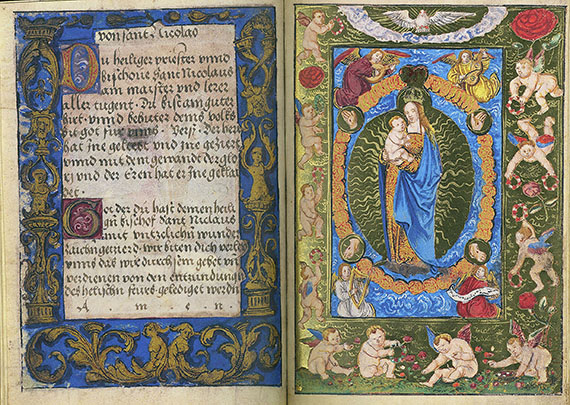 Von sant Nicolao
Du heiliger priester vnnd
bischoue sant Nicolaus
ain maister vnd lerer
aller tugent. Du bist ain guter
hirt. vnd behüter deins volks
bit got für vnns. Vers. Der herr
hat jne geliebt vnd jne geziert
vnnd mit dem gewandt der glo
rj vnd der Eren hat er jne geklai
det.
Got der du hast deinen heili
gen bischof Sant Niclaus
mit vntzelichn wunder
zaichn geziert. wir biten dich verleich
vnns das wir durch sein gebet vn
verdienen von den entzündung
des helischn feurs gelediget werdn
A m e n